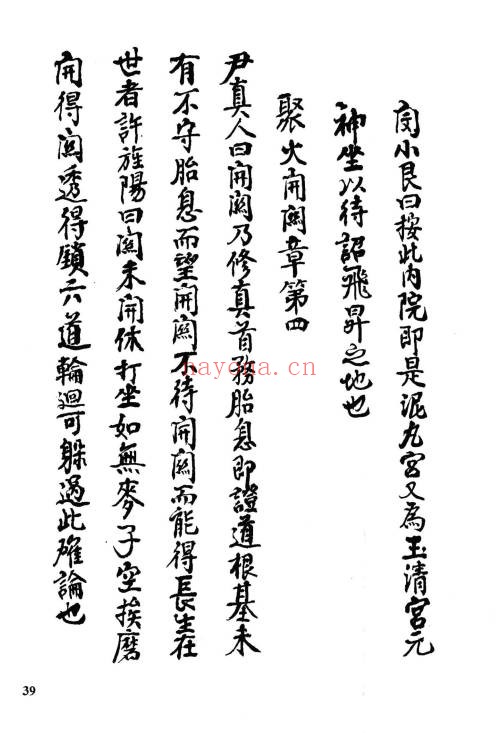 閔小艮曰按此內院即是泥丸宮又為玉清宮元
神坐以待詔飛昇之地也
聚火開關章第四
尹真人曰開關乃修真首務胎息即證道根基未
有不守胎息而望開關不待開關而能得長生在
世者許旌陽曰關未開休打坐如無麥子空挨磨
開得關透得鎖六道輪迴可躲過此確論也
nayoga.cn
39